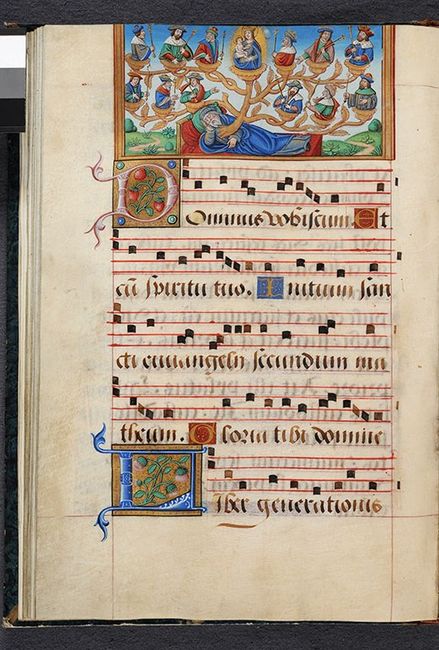 Dominus vobiscum. Et
cū spiritu tuo. Initium san
cti euuangelii secundum ma
theum. Gloria tibi domine
Liber generationis